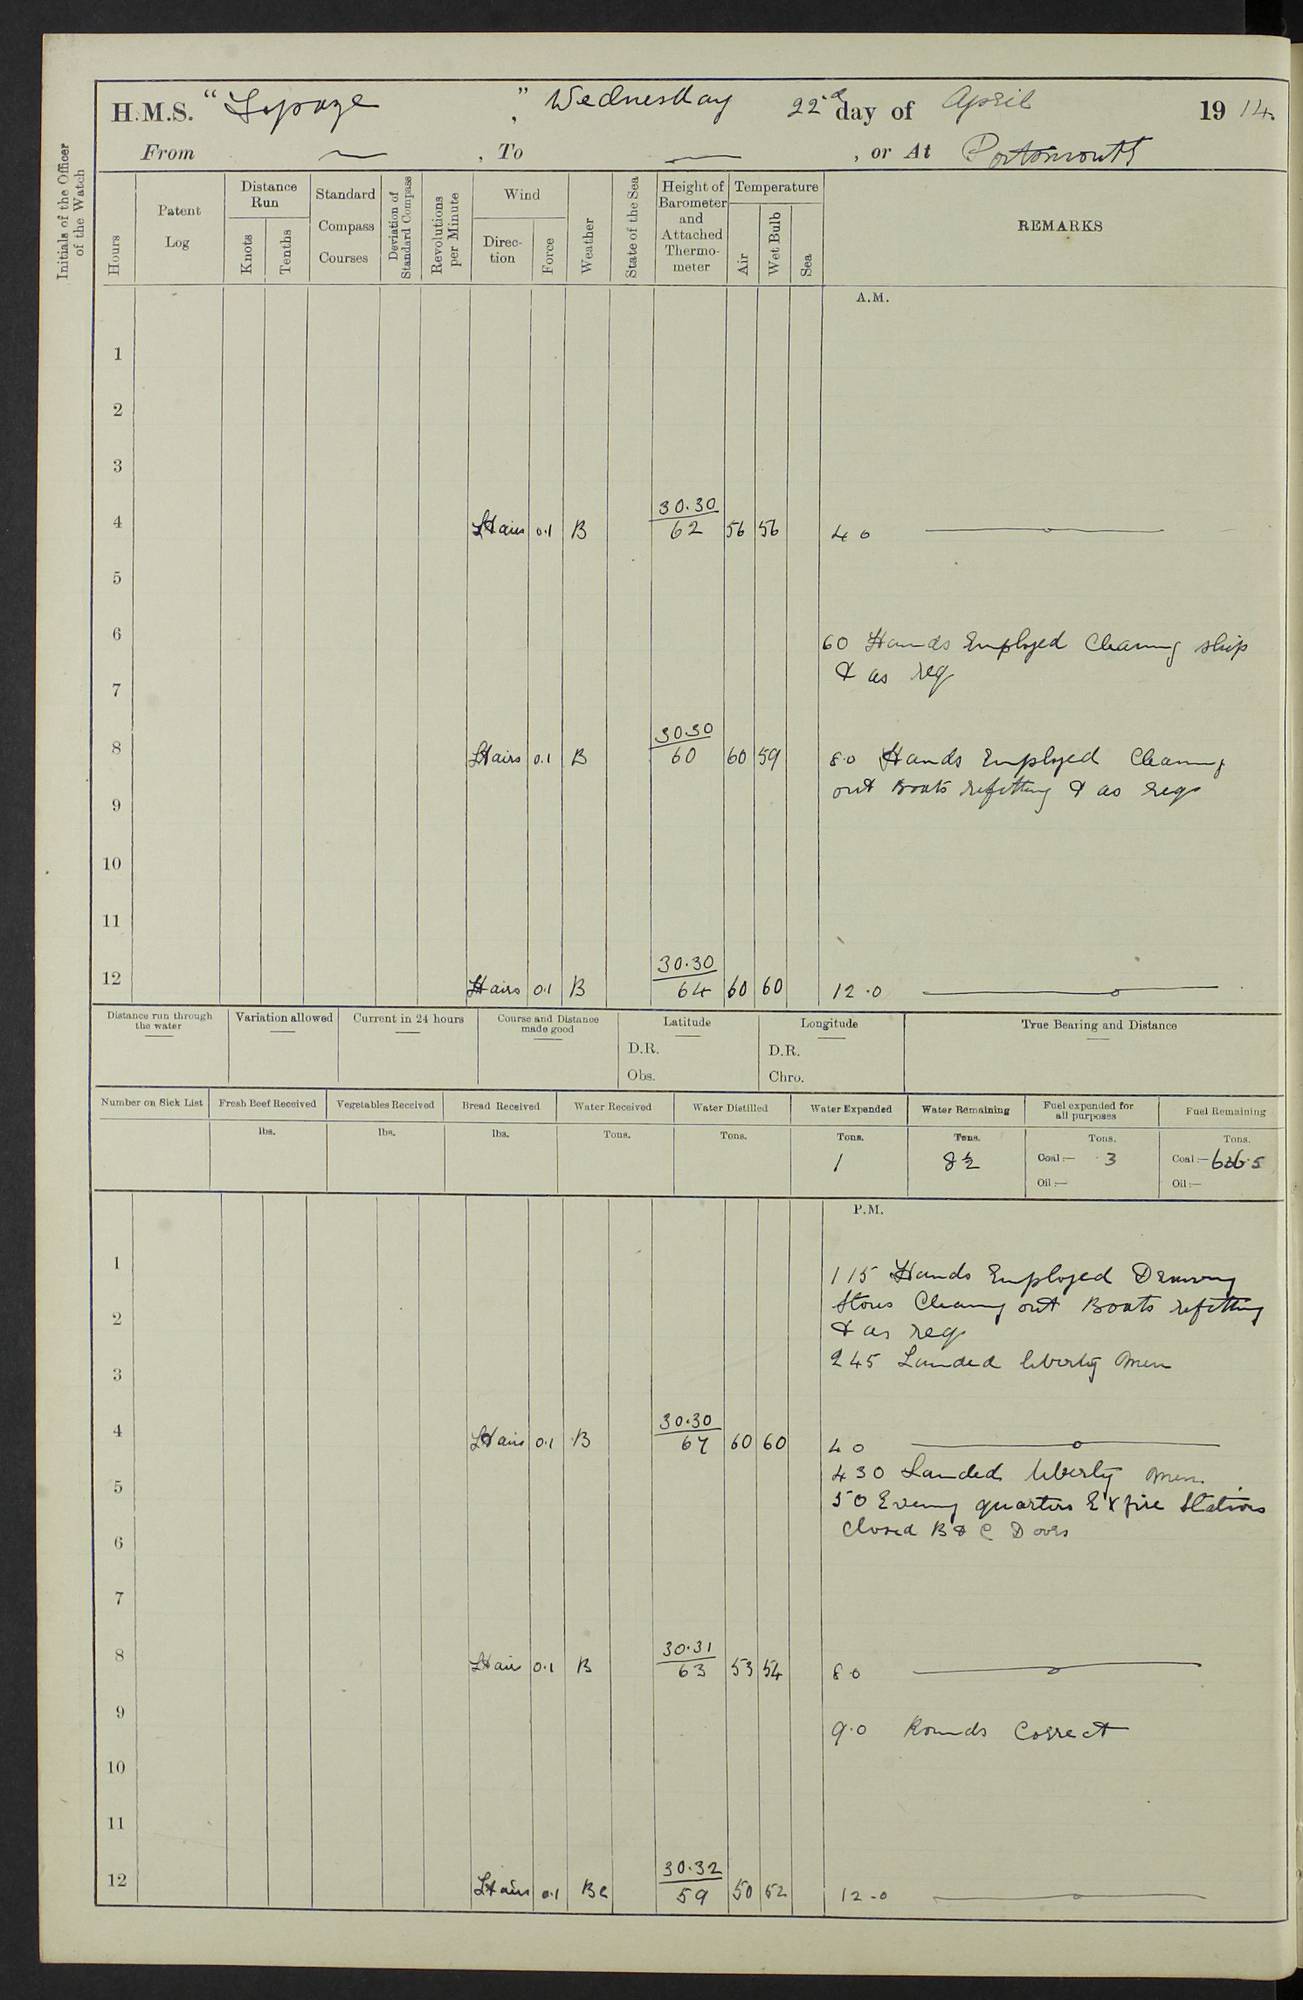 H.M.S. "Topaze", Wednesday 22d day of April 1914.
From — , To — , or At Portsmouth
Initials of the Officer of the Watch
Hours
Patent Log
Distance Run
Knots
Tenths
Standard Compass Courses
Deviation of Standard Compass
Revolutions per Minute
Wind
Direction
Force
Weather
State of the Sea
Height of Barometer and Attached Thermometer
Temperature
Air
Wet Bulb
Sea
REMARKS
A.M.
1
2
3
4 Lt airs 0.1 B 30.30 / 62 56 56 4 0
5
6 60 Hands Employed Cleaning ship
& as req
7
8 Lt airs 0.1 B 30.30 / 60 60 59 8.0 Hands Employed Cleaning
out Boats refitting & as req
9
10
11
12 Lt airs 0.1 B 30.30 / 64 60 60 12.0
Distance run through the water
Variation allowed
Current in 24 hours
Course and Distance made good
Latitude
D.R.
Obs.
Longitude
D.R.
Chro.
True Bearing and Distance
Number on Sick List
Fresh Beef Received
lbs.
Vegetables Received
lbs.
Bread Received
lbs.
Water Received
Tons.
Water Distilled
Tons.
Water Expended
Tons.
1
Water Remaining
Tons.
8½
Fuel expended for all purposes
Tons.
Coal:— 3
Oil:—
Fuel Remaining
Tons.
Coal:—
Oil:—
P.M.
1 115 Hands Employed Drawing
2 Stores Cleaning out Boats refitting
& as req
3 245 Landed liberty men
4 Lt airs 0.1 B 30.30 / 67 60 60 4 0
430 Landed liberty men
5 50 Evening quarters Ex fire Stations
Closed B & C Doors
6
7
8 Lt airs 0.1 B 30.31 / 63 53 54 8 0
9 9.0 Rounds Correct
10
11
12 Lt airs 0.1 Bc 30.32 / 59 50 52 12.0